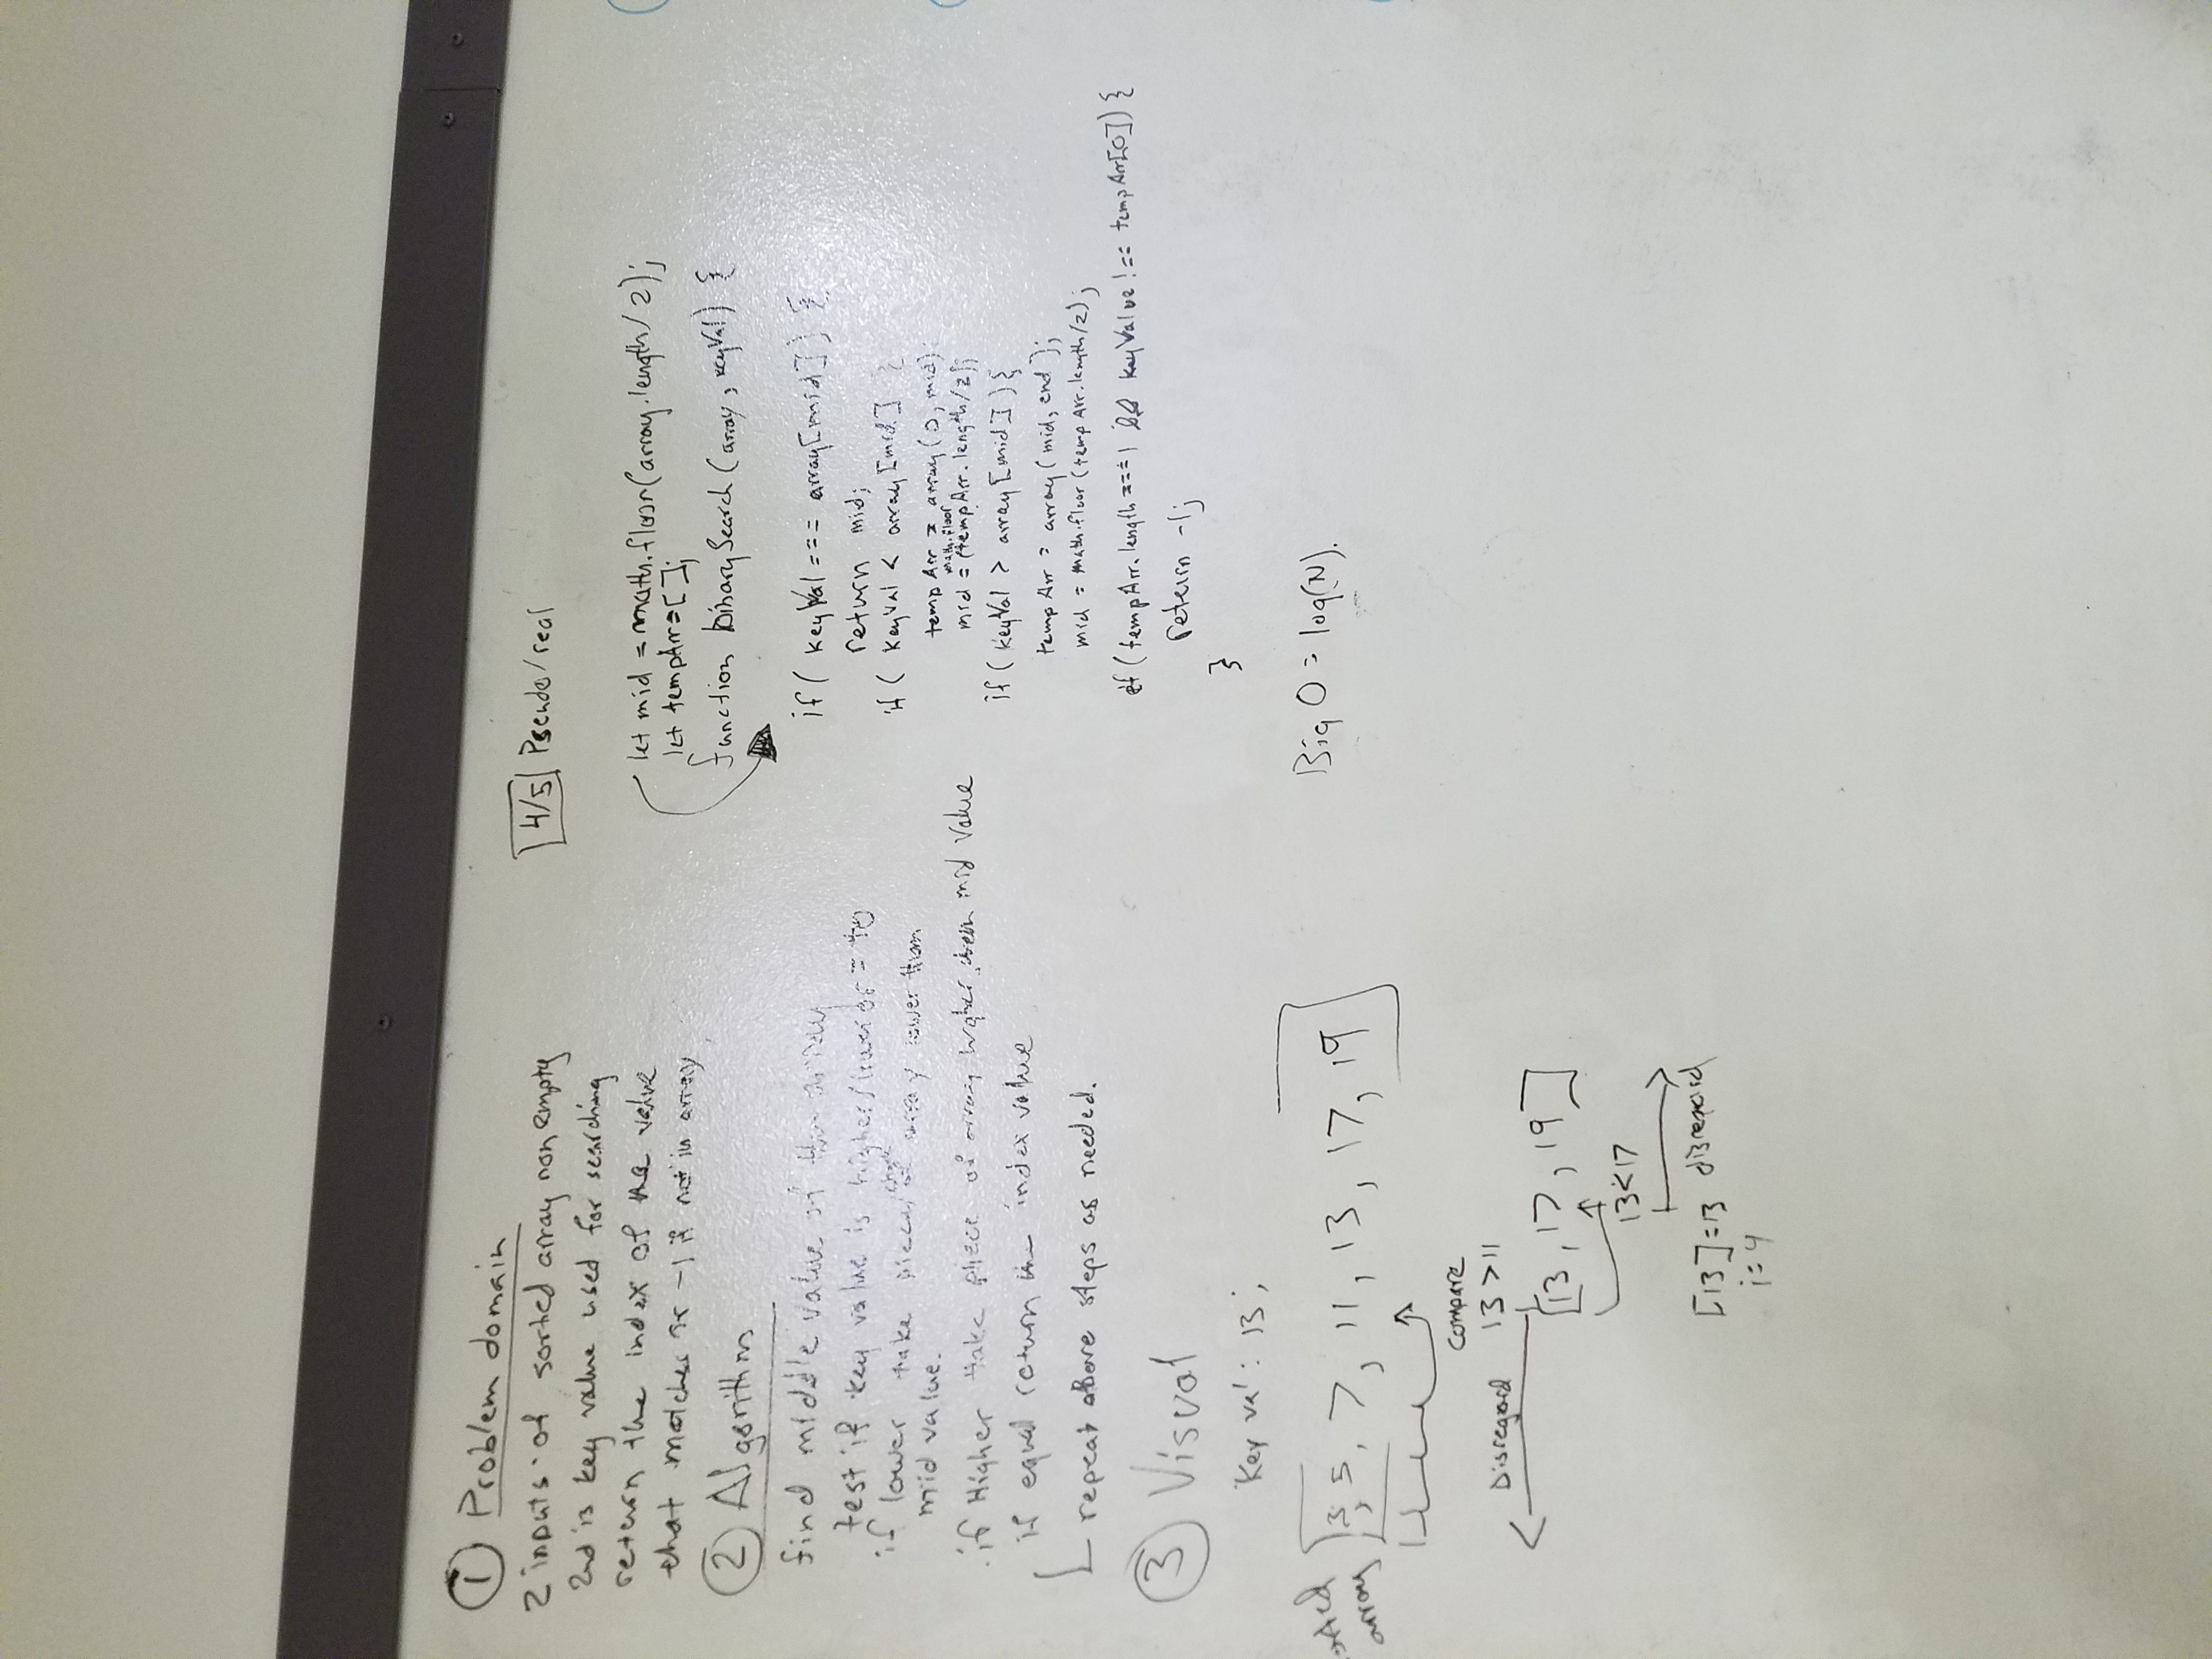 1 Problem domain
2 inputs of sorted array non empty
2nd is key value used for searching
return the index of the value
that matches or -1 if not in array
2 Algorithm
find middle value of the array
test if key value is higher/lower or = to
chunk
if lower take piece/ of array lower than
mid value.
if Higher take piece of array higher than mid value
if equal return the index value
repeat above steps as needed.
3 Visual
Key val: 13;
array [3, 5, 7, 11, 13, 17, 19]
Compare
13 > 11
Disregard
[13, 17, 19]
13 < 17
[13] = 13 disregard
i = 4
4/5 Pseudo/real
let mid = math.floor(array.length/2);
let tempArr = [];
function binarySearch (array, keyVal) {
if ( keyVal === array[mid] ) {
return mid;
if ( KeyVal < array [mid] {
tempArr = array (0, mid)
math.floor
mid = (tempArr.length/2);
if ( keyVal > array [mid] ) {
tempArr = array (mid, end );
mid = math.floor (tempArr.length/2);
if (tempArr.length === 1 && keyValue !== tempArr[0]) {
return -1;
}
Big O = log(N).